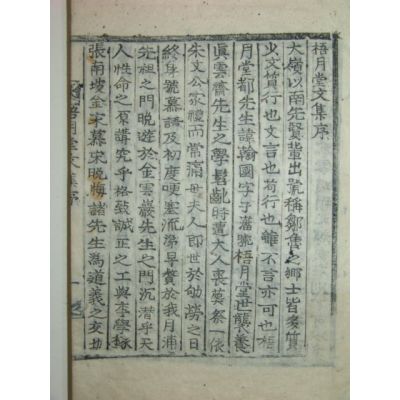 梧月堂文集序
大嶺以南先賢輩出號稱鄒魯之鄉士皆多質
少文質行也文言也苟行也雖不言亦可也梧
月堂都先生諱翰國字子藩號梧月堂世襲養
眞雲齋先生之學髫齔時遭大人喪葬祭一依
朱文公家禮而常痛世夫人卽世於劬勞之日
終身號慕語及初度哽塞流涕早贄於我月浦
先祖之門晩遊於金雲巖先生之門沉潛乎天
人性命之原講究乎格致誠正之工與李學稼
張南坡金宋慕宋晩悔諸先生爲道義之交劫
梧月堂文集序 一